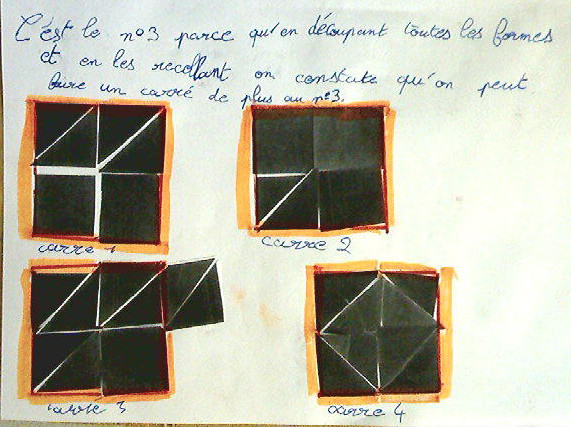 C'est le n°3 parce qu'en découpant toutes les formes
et en les recollant on constate qu'on peut
faire un carré de plus au n°3.
carre 1
carre 2
carré 3
carre 4